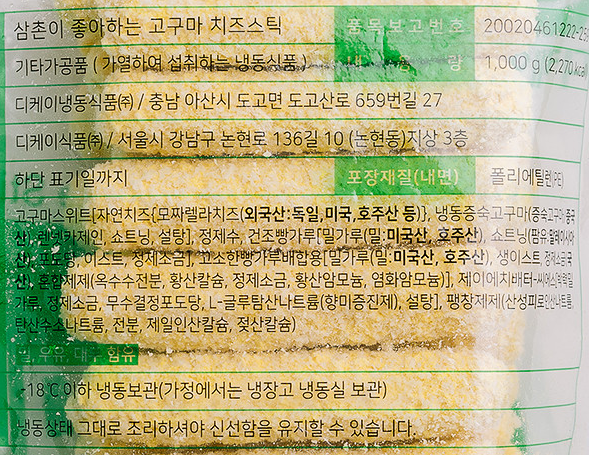 삼촌이 좋아하는 고구마 치즈스틱 품목보고번호 20020461222-25
기타가공품 ( 가열하여 섭취하는 냉동식품 ) 내 용 량 1,000 g (2,270 kcal
디케이냉동식품㈜ / 충남 아산시 도고면 도고산로 659번길 27
디케이식품㈜ / 서울시 강남구 논현로 136길 10 (논현동)지상 3층
하단 표기일까지 포장재질(내면) 폴리에틸렌(PE)
고구마스위트[자연치즈{모짜렐라치즈(외국산:독일,미국,호주산 등)}, 냉동증숙고구마(증숙고구마:중국
산), 렌넷카제인, 쇼트닝, 설탕], 정제수, 건조빵가루[밀가루(밀:미국산, 호주산), 쇼트닝(팜유:말레이시아
산), 포도당, 이스트, 정제소금], 고소한빵가루배합용[밀가루(밀:미국산, 호주산), 생이스트, 정제소금:국
산), 혼합제제(옥수수전분, 황산칼슘, 정제소금, 황산암모늄, 염화암모늄)], 제이에치배터
가루, 정제소금, 무수결정포도당, L-글루탐산나트륨(향미증진제), 설탕], 팽창제제(산성피로인산나트륨,
탄산수소나트륨, 전분, 제일인산칼슘, 젖산칼슘)
밀, 우유, 대두 함유
-18℃이하 냉동보관(가정에서는 냉장고 냉동실 보관)
냉동상태 그대로 조리하셔야 신선함을 유지할 수 있습니다.